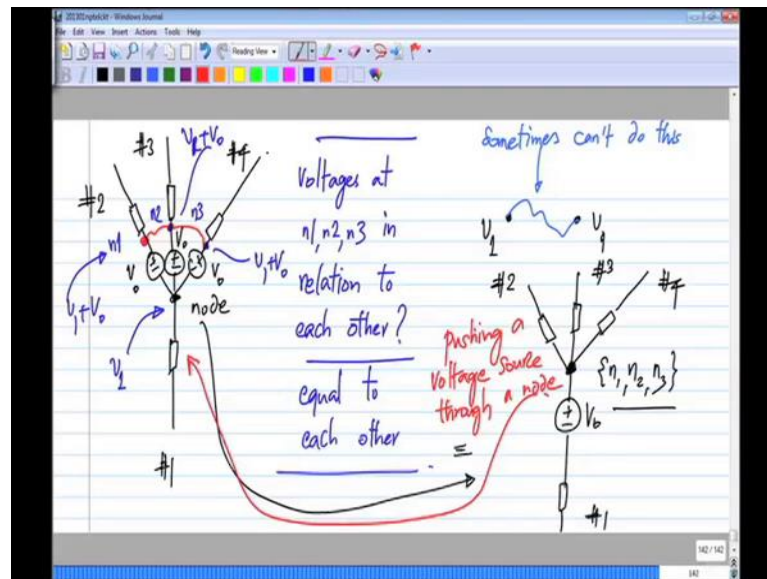 201301nptelckt - Windows Journal
File Edit View Insert Actions Tools Help
Reading View
B I
#2
#3
#4
n1
n2
n3
V1+Vo
V1+Vo
V1+Vo
Vo
Vo
Vo
node
V1
#1
Voltages at
n1, n2, n3 in
relation to
each other?
equal to
each other
Sometimes can't do this
V1
V1
pushing a
voltage source
through a node
=
#2
#3
#4
{n1, n2, n3}
Vo
#1
142 / 142
142